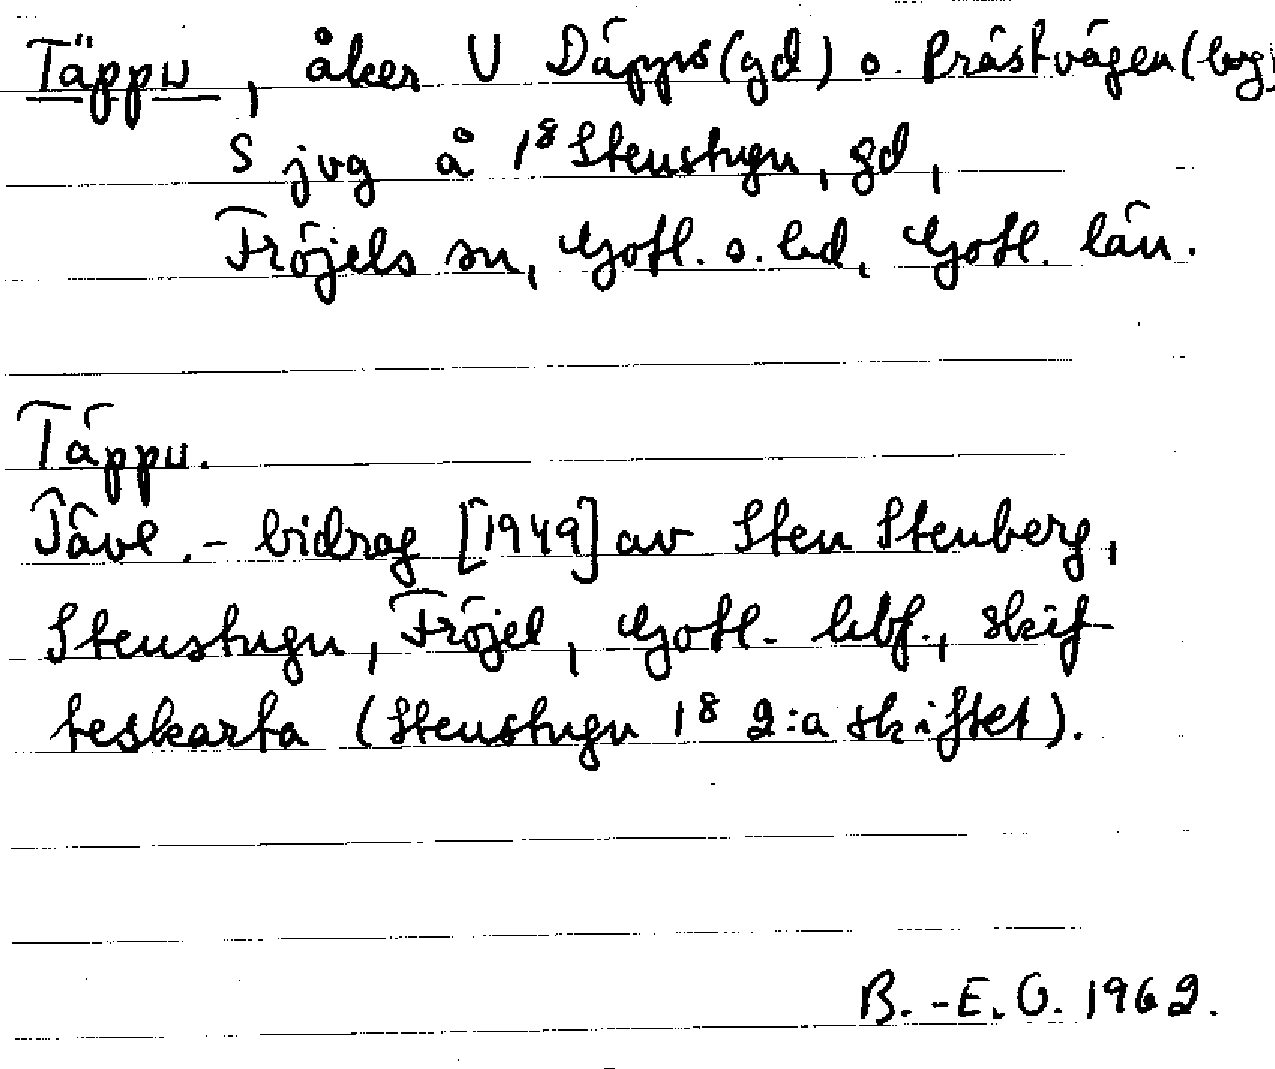 Täppu, åker V Däpps (gd) o. Prästvägen (byg
S jvg å 1⁸ Stenstugu, gd,
Fröjels sn, Gotl. s. hd, Gotl. län.
Täppu.
Tävl.- bidrag [1949] av Sten Stenberg,
Stenstugu, Fröjel, Gotl. hbf., skif
teskarta (Stenstugu 1⁸ 2:a skiftet).
B.-E. O. 1962.